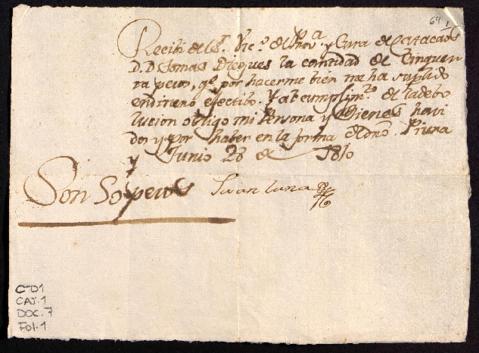 64 1
Recibi del Sr. Vic.o de Prov.a y Cura de Catacaos
D. D. Tomas Diegues la cantidad de Cinquen
ta pesos, q.e por hacerme bien me ha suplido
en dinero efectibo. Y al cumplim.to de la debo
lucion obligo mi Persona y Bienes havi
dos y por haber en la forma de dro. Piura
y Junio 28 de 1810
Son 50 pesos Juan Luna
C-D1
CAJ.1
DOC.7
FOl.1